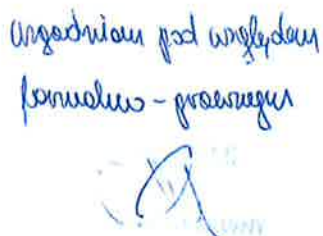 uzgodniono pod względem
formalno-prawnym